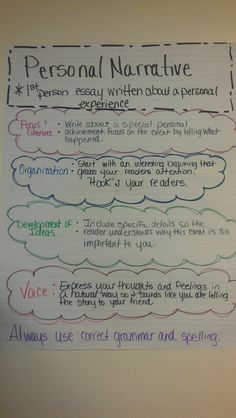 Personal Narrative
* 1st person essay written about a personal
experience
Focus & Coherence
• Write about a special personal
• achievement focus on the event by telling what
happened.
Organization
• Start with an interesting beginning that
• grabs your readers attention.
"Hook" your readers.
Development of Ideas
• Include specific details so the
• reader understands why this event is so
important to you.
Voice:
• Express your thoughts and feelings in
a natural way so it sounds like you are telling
the story to your friend.
Always use correct grammar and spelling.